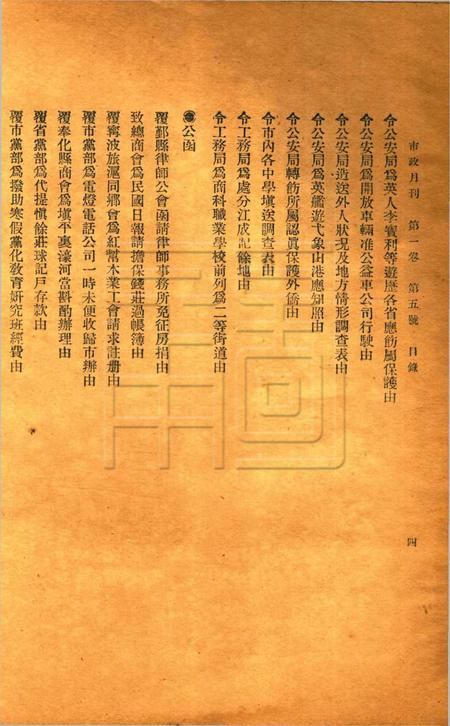 市政月刊　第一卷　第五號　目錄
四
令公安局爲英人李賓利等遊歷各省應飭屬保護由
令公安局爲開放車輛准公益車公司行駛由
令公安局造送外人狀况及地方情形調查表由
令公安局爲英艦遊弋象山港應知照由
令公安局轉飭所屬認眞保護外僑由
令市內各中學塡送調查表由
令工務局爲處分江成記餘地由
令工務局爲商科職業學校前列爲二等街道由
◉公函
覆鄞縣律師公會函請律師事務所免征房捐由
致總商會爲民國日報請擔保錢莊過帳簿由
覆寗波旅滬同鄉會爲紅幫木業工會請求註册由
覆市黨部爲電燈電話公司一時未便收歸市辦由
覆奉化縣商會爲塡平裏濠河當斟酌辦理由
覆省黨部爲代提愼餘莊球記戶存款由
覆市黨部爲撥助寒假黨化敎育硏究班經費由